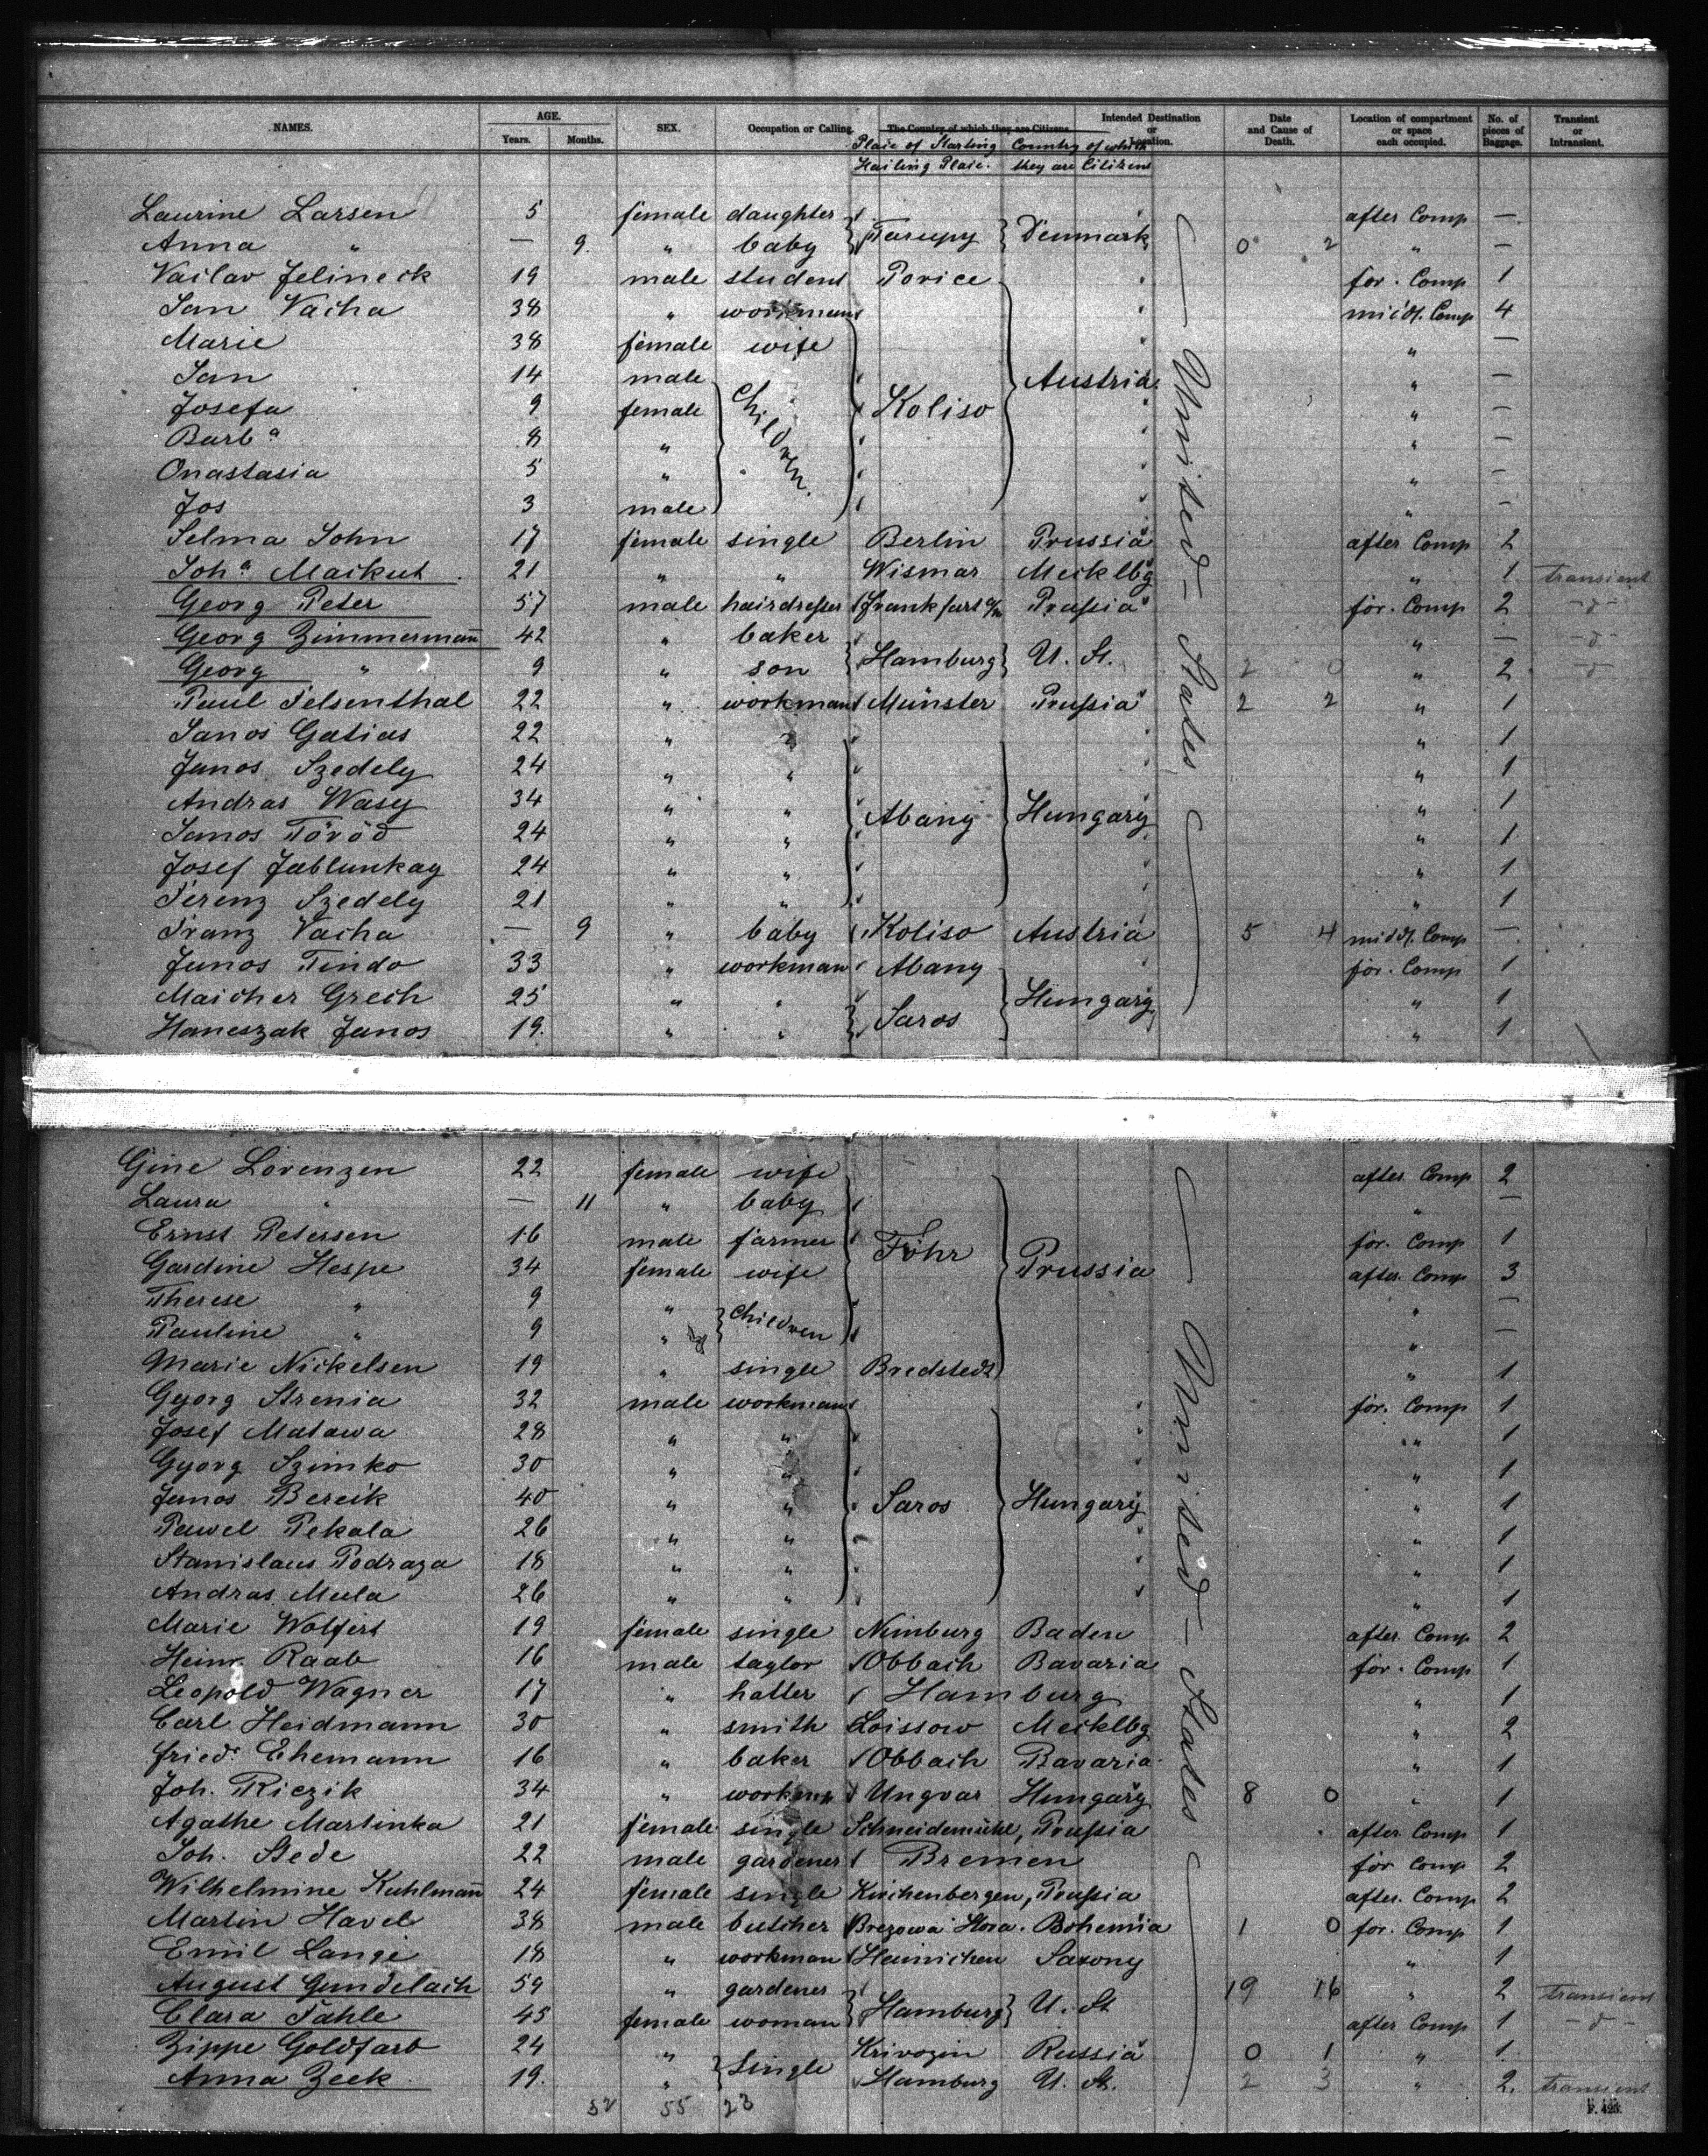 NAMES. AGE. SEX. Occupation or Calling. The Country of which they are Citizens. Intended Destination or Location. Date and Cause of Death. Location of compartment or space each occupied. No. of pieces of Baggage. Transient or Intransient.
Years. Months. Place of Starting Country of which
Hailing Place. they are Citizens
Laurine Larsen 5 female daughter Denmark after Comp —
Anna " — 9 " baby 0 2 " —
Vaclav Jelineck 19 male student Porice for. Comp 1
Jan Vacha 38 " workman middl. Comp 4
Marie 38 female wife " —
Jan 14 male Children Koliso Austria " —
Josefa 9 female " —
Barba 8 " " —
Onastasia 5 " " —
Jos 3 male " —
Selma John 17 female single Berlin Prussia after Comp 2
Joha Mackut 21 " " Wismar Mecklbg " 1 transient
Georg Peter 57 male hairdresser Frankfurt a/m Prussia for. Comp 2 -d-
Georg Zimmermann 42 " baker Hamburg U. St. " — -d-
Georg " 9 " son 2 0 " 2 d
Paul Felsenthal 22 " workman Münster Prussia 2 2 " 1
Janos Gatias 22 " " " 1
Janos Szedely 24 " " " 1
Andras Wasy 34 " " Abany Hungary " 1
Janos Töröd 24 " " " 1
Josef Jablunkay 24 " " " 1
Ferenz Szedely 21 " " " 1
Franz Vacha — 9 " baby Koliso Austria 5 4 middl. Comp —
Janos Tindo 33 " workman Abany for. Comp 1
Maicher Grech 25 " " Saros Hungary " 1
Haneszak Janos 19. " " " 1
United States
Gine Lorenzen 22 female wife after Comp 2
Laura " — 11 " baby " —
Ernst Petersen 16 male farmer Föhr for. Comp 1
Gardine Hespe 34 female wife Prussia after Comp 3
Therese " 9 " Children " —
Pauline " 9 " " —
Marie Nickelsen 19 " single Bredstedt " 1
Gyorg Strenia 32 male workman for. Comp 1
Josef Matawa 28 " " " 1
Gyorg Szimko 30 " " " 1
Janos Bereik 40 " " Saros Hungary " 1
Pawel Pekala 26 " " " 1
Stanislaus Podraza 18 " " " 1
Andras Mula 26 " " " 1
Marie Wolfert 19 female single Nimburg Baden after Comp 2
Heinr. Raab 16 male taylor Obbach Bavaria for. Comp 1
Leopold Wagner 17 " hatter Hamburg " 1
Carl Heidmann 30 " smith Loissow Mecklbg " 2
Fried. Ehemann 16 " baker Obbach Bavaria " 1
Joh. Riczik 34 " workman Ungvar Hungary 8 0 " 1
Agathe Martinka 21 female single Schneidemühl, Prussia after Comp 1
Joh. Stede 22 male gardener Bremen for Comp 2
Wilhelmine Kuhlmann 24 female single Kirchenbergen, Prussia after Comp 2
Martin Havel 38 male butcher Brezowa Hora. Bohemia 1 0 for. Comp 1
Emil Lange 18 " workman Hainichen Saxony " 1
August Gundelach 59 " gardener Hamburg U. St 19 16 " 2 transient
Clara Fahle 45 female woman after Comp 1 -d-
Zippe Goldfarb 24 " Single Krivozin Russia 0 1 " 1
Anna Zeek 19. " Hamburg U. St. 2 3 " 2. transient
United States
52 55 23